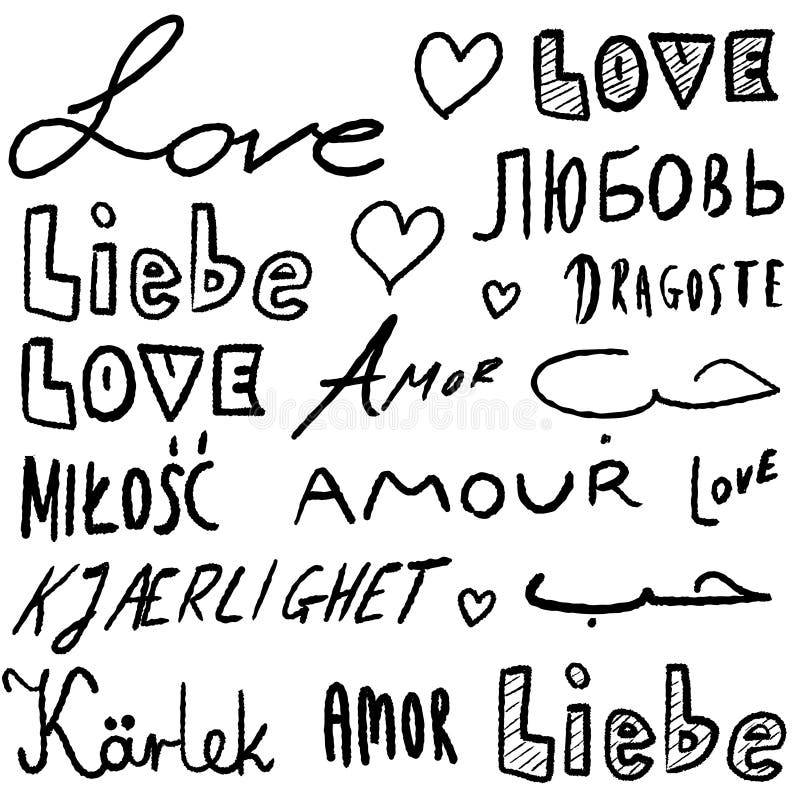 Love
LOVE
ЛЮБОВЬ
Liebe
DRAGOSTE
LOVE
AMOR
حب
MIŁOŚĆ
AMOUR
LOVE
KJÆRLIGHET
حب
Kärlek
AMOR
Liebe
dreamstime